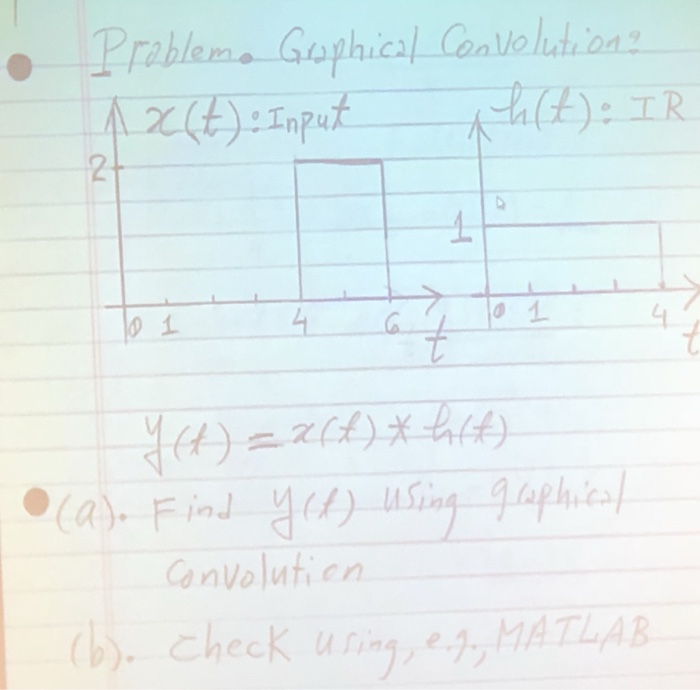 Problem. Graphical Convolution?
x(t): Input
h(t): IR
2
1
0 1 4 6 t
0 1 4 t
y(t) = x(t) * h(t)
(a). Find y(t) using graphical
convolution
(b). check using, e.g., MATLAB